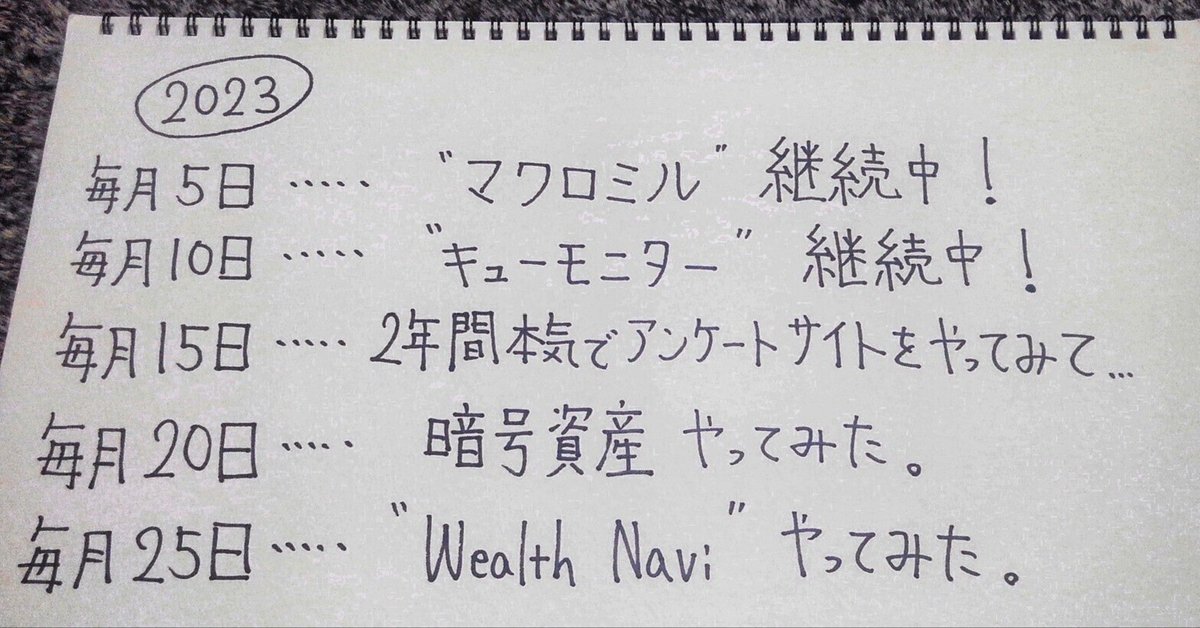 2023
毎月5日 ..... "マクロミル" 継続中!
毎月10日 ..... "キューモニター" 継続中!
毎月15日 ..... 2年間本気でアンケートサイトをやってみて...
毎月20日 ..... 暗号資産 やってみた。
毎月25日 ..... "Wealth Navi" やってみた。